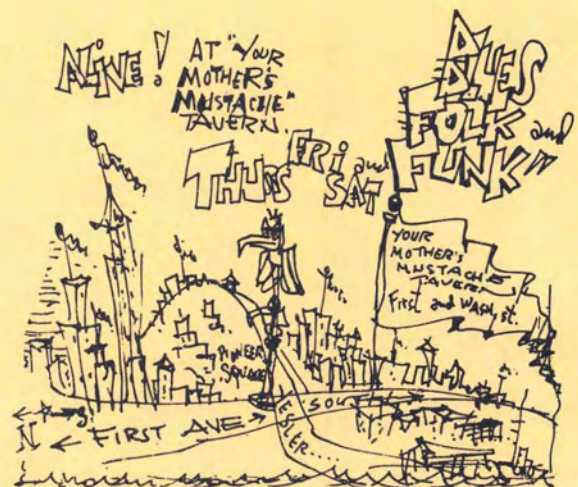 ALiVE!
AT "YOUR
MOTHER'S
MUSTACHE"
TAVERN.
THURS FRI and
SAT
BLUES
FOLK and
FUNK"
YOUR
MOTHER'S
MUSTACHE
TAVERN
First and WASH. st.
PIONEER
SQUARE
N ← FIRST AVE → SOUTH
YESLER....